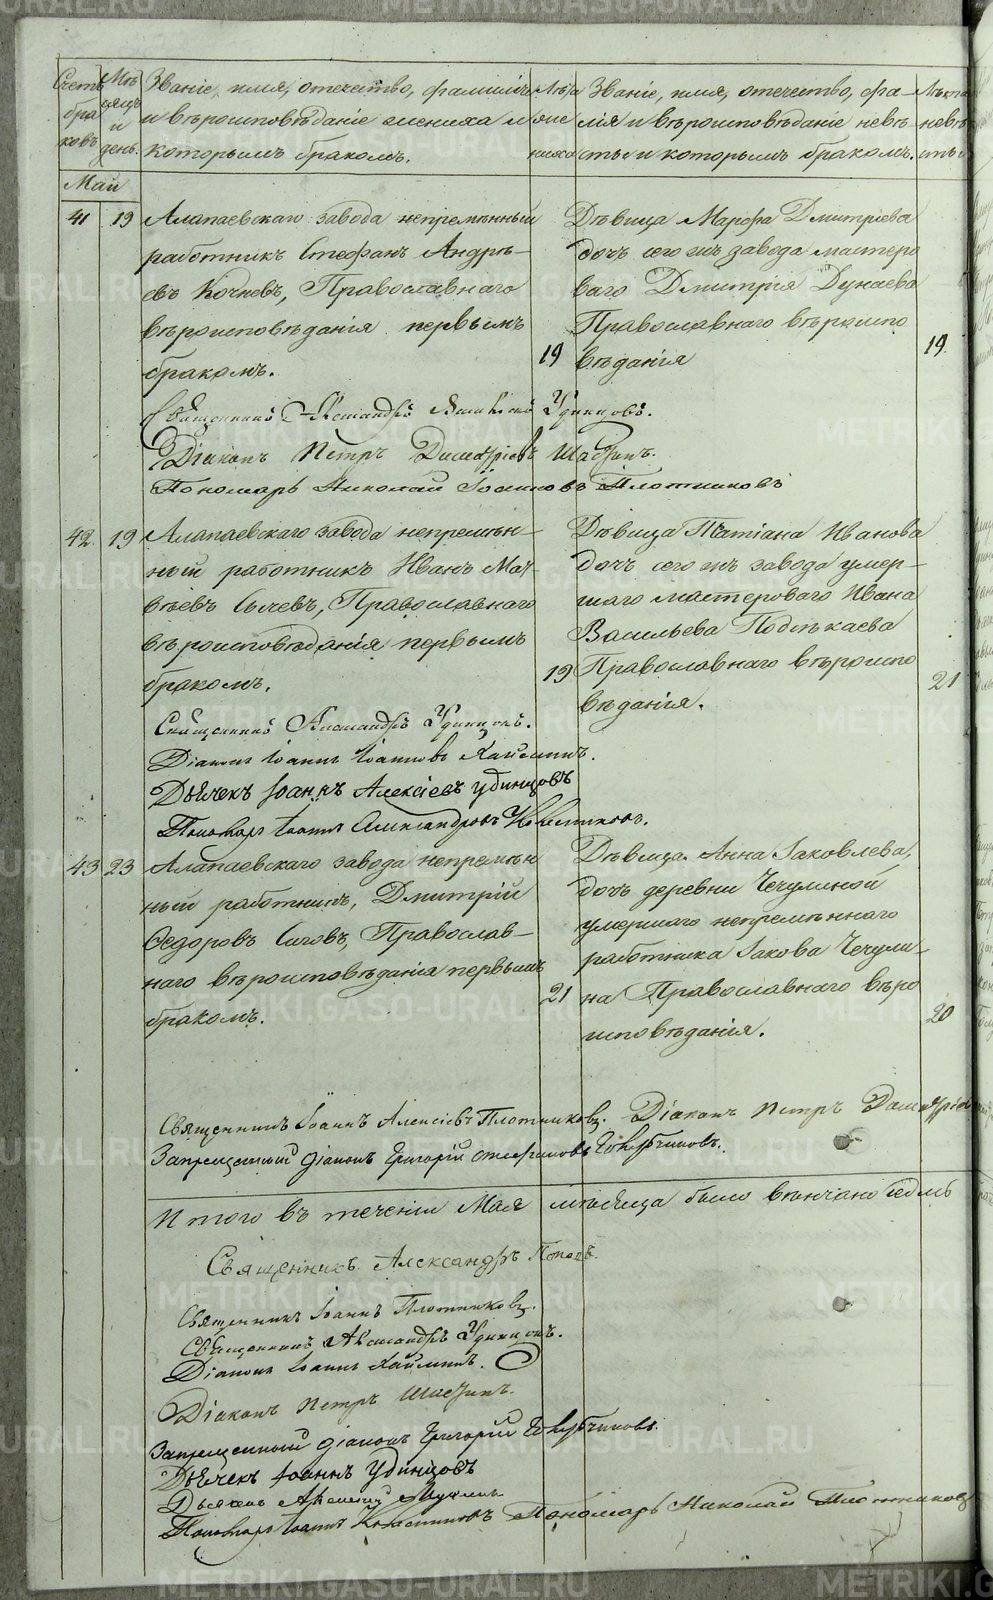 Счетъ бра ковъ.
Мѣ сяцъ и день.
Званіе, имя, отечество, фамилія и вѣроисповѣданіе жениха и которымъ бракомъ.
Лѣта же ниха
Званіе, имя, отечество, фа- милія и вѣроисповѣданіе невѣ- сты и которымъ бракомъ.
Лѣта невѣ сты
Май
41 19 Алапаевскаго завода непремѣнный
работникъ Стефанъ Андрѣ-
евъ Кочневъ, Православнаго
вѣроисповѣданія первымъ
бракомъ.
19
Дѣвица Марфа Дмитріева
дочь сего жъ завода мастеро
ваго Дмитрія Дунаева
Православнаго вѣроиспо
вѣданія
19.
Священникъ Александръ Удинцовъ.
Діаконъ Петръ Димитріевъ Шадринъ.
Пономарь Николай Іоанновъ Плотниковъ
42. 19 Алапаевскаго завода непремѣн-
ный работникъ Иванъ Мат-
вѣевъ Сычевъ, Православнаго
вѣроисповѣданія первымъ
бракомъ.
19
Дѣвица Татіана Иванова
дочь сего жъ завода умер-
шаго мастероваго Ивана
Васильева
Православнаго вѣроиспо
вѣданія.
21
Священникъ Александръ Удинцовъ.
Діаконъ Іоаннъ Іоанновъ
Дьячекъ Іоаннъ Алексіевъ Удинцовъ
Пономарь Іоаннъ Александровъ
43 23 Алапаевскаго завода непремѣн
ный работникъ, Дмитрій
Федоровъ Сычовъ, Православ-
наго вѣроисповѣданія первымъ
бракомъ.
21
Дѣвица Анна Іаковлева,
дочь деревни Чечулиной
умершаго непремѣннаго
работника Іакова Чечули-
на Православнаго вѣро
исповѣданія.
20
Священникъ Іоаннъ Алексіевъ Плотниковъ. Діаконъ Петръ
Запрещенный діаконъ Григорій Стефановъ
Итого въ теченіи Мая мѣсяца было вѣнчано
Священникъ Александръ Поповъ.
Священникъ Іоаннъ Плотниковъ.
Священникъ Александръ Удинцовъ.
Діаконъ Іоаннъ
Діаконъ Петръ Шадринъ.
Запрещенный діаконъ Григорій
Дьячекъ Іоаннъ Удинцовъ
Пономарь Іоаннъ Пономарь Николай Плотниковъ
METRIKI.GASO-URAL.RU